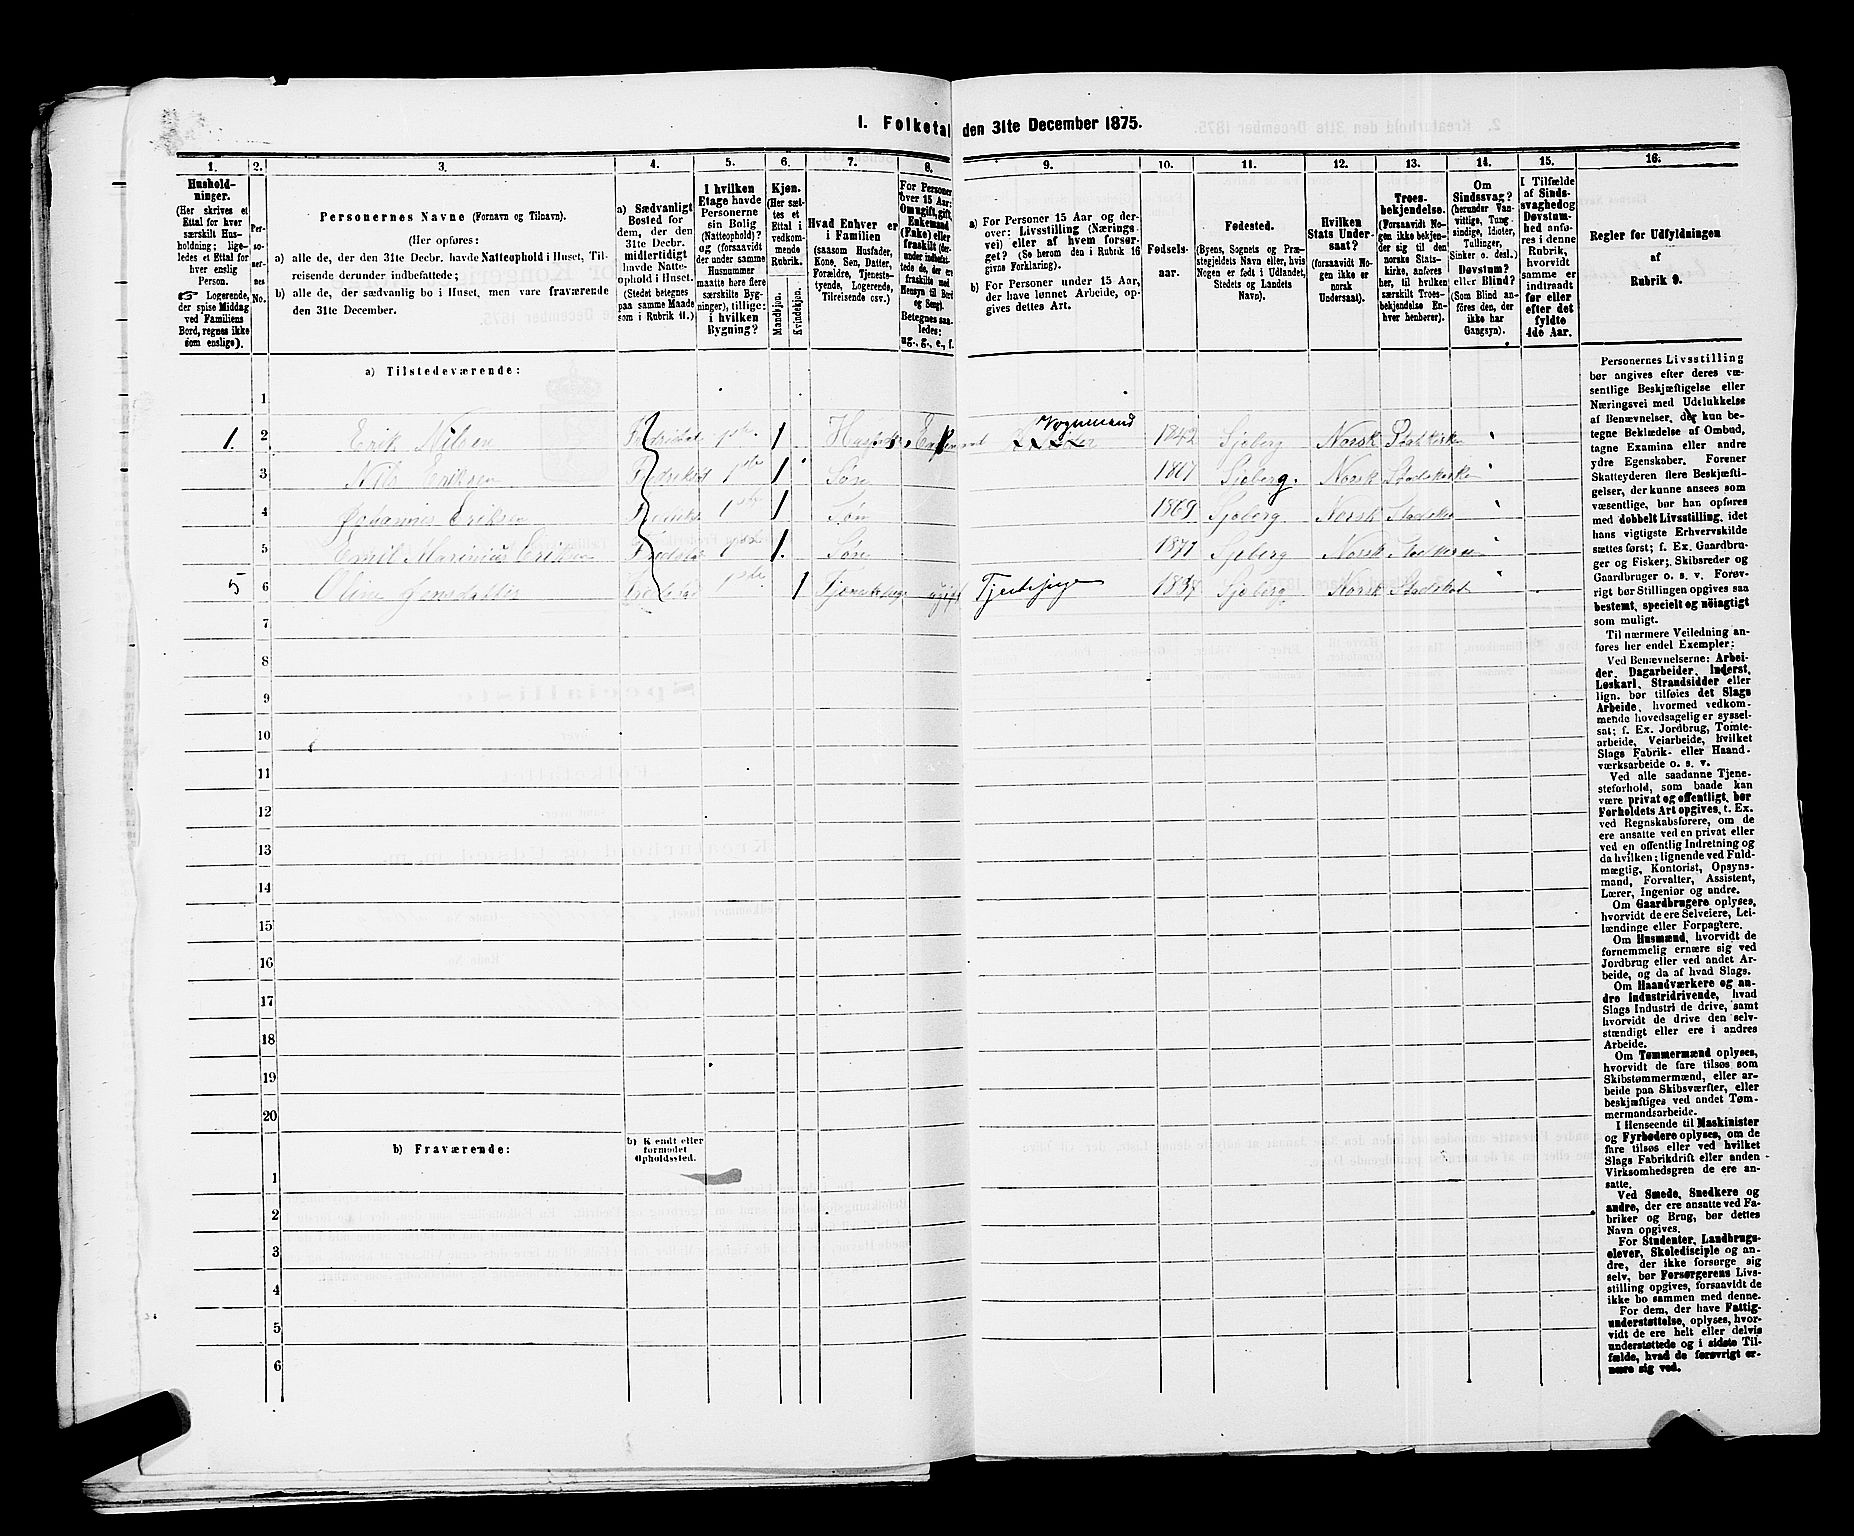 I. Folketal den 31te December 1875.
1. 2. 3. 4. 5. 6. 7. 8. 9. 10. 11. 12. 13. 14. 15. 16.
Hushold-
ninger.
(Her skrives et
Ettal for hver
særskilt Hus-
holdning; lige-
ledes et Ettal for
hver enslig
Person.
☞ Logerende,
der spise Middag
ved Familiens
Bord, regnes ikke
som enslige).
Per-
so-
ner-
nes
No.
Personernes Navne (Fornavn og Tilnavn).
(Her opføres:
a) alle de, der den 31te Decbr. havde Natteophold i Huset, Til-
reisende derunder indbefattede;
b) alle de, der sædvanlig bo i Huset, men vare fraværende
den 31te December.
a) Sædvanligt
Bosted for
dem, der den
31te Decbr.
midlertidigt
havde Natte-
ophold i Huset.
(Stedet betegnes
paa samme Maade
som i Rubrik 11.)
I hvilken
Etage havde
Personerne
sin Bolig
(Natteophold)?
og (forsaavidt
der under samme
Husnummer
maatte høre flere
særskilte Byg-
ninger), tillige:
i hvilken
Bygning?
Kjøn.
(Her sæt-
tes et
Ettal i
vedkom-
mende
Rubrik.
Mandkjøn.
Kvindekjøn.
Hvad Enhver er
i Familien
(saasom Husfader,
Kone, Søn, Datter,
Forældre, Tjeneste-
tyende, Logerende,
Tilreisende osv.)
For Personer
over 15 Aar:
Om ugift, gift,
Enkemand
(Enke) eller
fraskilt (der-
under indbefat-
tede de, der ere
fraskilte med
Hensyn til Bord
og Seng).
Betegnes saa-
ledes:
ug., g., e., f.
a) For Personer 15 Aar og der-
over: Livsstilling (Nærings-
vei) eller af hvem forsør-
get? (Se herom den i Rubrik 16
givne Forklaring).
b) For Personer under 15 Aar,
der have lønnet Arbeide, op-
gives dettes Art.
Fødsels-
aar.
Fødested.
(Byens, Sognets og Præ-
stegjeldets Navn eller, hvis
Nogen er født i Udlandet,
Stedets og Landets
Navn).
Hvilken
Stats Under-
saat?
(forsaavidt No-
gen ikke er
norsk
Undersaat).
Troes-
bekjendelse.
(Forsaavidt No-
gen ikke bekjen-
der sig til den
norske Stats-
kirke, anføres
her, til hvilken
særskilt Troes-
bekjendelse En-
hver henhører).
Om
Sindssvag?
(herunder Van-
vittige, Tung-
sindige, Idioter,
Tullinger,
Sinker o. desl.)
Døvstum?
eller Blind?
(Som Blind an-
føres den, der
ikke har
Gangsyn).
I Tilfælde
af Sinds-
svaghed og
Døvstum-
hed anføres
i denne
Rubrik,
hvorvidt
samme er
indtraadt
før eller
efter det
fyldte
4de Aar.
Regler for Udfyldningen
af
Rubrik 9.
a) Tilstedeværende:
1
1 2 Erik Nilsen 1 Enkemand Vognmand 1842 Sjøberg Norsk
3 Nils Eriksen 1 Søn Sjøberg. Norsk
4 Johannes Eriksen 1 Søn 1869 Sjøberg Norsk
5 Emil Marinius Eriksen 1 Søn 1871 Sjøberg Norsk
5 6 Oline 1 ugift 1837 Sjøberg Norsk
7
8
9
10
11
12
13
14
15
16
17
18
19
20
b) Fraværende:
b) Kendt eller
formodet
Opholdssted.
1
2
3
4
5
6
Personernes Livsstilling
bør angives efter deres væ-
sentlige Beskjæftigelse eller
Næringsvei med Udelukkelse
af Benævnelser, der kun be-
tegne Beklædelse af Ombud,
tagne Examina eller andre
ydre Egenskaber. Forener
Skatteyderen flere Beskjæfti-
gelser, der kunne ansees som
væsentlige, bør han opføres
med dobbelt Livsstilling, idet
hans vigtigste Erhvervskilde
sættes først; f. Ex. Gaardbru-
ger og Fisker; Skibsreder og
Gaardbruger o. s. v. Forøv-
rigt bør Stillingen opgives saa
bestemt, specielt og nöiagtigt
som muligt.
Til nærmere Veiledning an-
føres her endel Exempler:
Ved Benævnelserne: Arbei-
der, Dagarbeider, Inderst,
Løskarl, Strandsidder eller
lign. bør tilføies det Slags
Arbeide, hvormed vedkom-
mende hovedsagelig er syssel-
sat; f. Ex. Jordbrug, Tomte-
arbeide, Veiarbeide, hvilket
Slags Fabrik- eller Haand-
værksarbeide o. s. v.
Ved alle saadanne Tjene-
steforhold, som baade kan
være privat og offentligt, bør
Forholdets Art opgives, t. Ex.
ved Regnskabsførere, om de
ere ansatte ved en privat eller
ved en offentlig Indretning og
da hvilken; lignende ved Fuld-
mægtig, Kontorist, Opsyns-
mand, Forvalter, Assistent,
Lærer, Ingeniør og andre.
Om Gaardbrugere oplyses,
hvorvidt de ere Selveiere, Lei-
lændinge eller Forpagtere.
Om Husmænd, hvorvidt de
fornemmelig ernære sig ved
Jordbrug eller ved andet Ar-
beide, og da af hvad Slags.
Om Haandværkere og an-
dre Industridrivende, hvad
Slags Industri de drive, samt
hvorvidt de drive den selv-
stændigt eller ere i andres
Arbeide.
Om Tømmermænd oplyses,
hvorvidt de fare tilsøs som
Skibstømmermænd, eller ar-
beide paa Skibsværfter, eller
beskjæftiges ved andet Tøm-
mermandsarbeide.
I Henseende til Maskinister
og Fyrbødere oplyses, om de
fare tilsøs eller ved hvilket
Slags Fabrikdrift eller anden
Virksomhedsgren de ere an-
satte.
Ved Smede, Snedkere og
andre, der ere ansatte ved Fa-
briker og Brug, bør dettes
Navn opgives.
For Studenter, Landbrugs-
elever, Skoledisciple og an-
dre, der ikke forsørge sig
selv, bør Forsørgerens Livs-
stilling opgives, forsaavidt de
ikke bo sammen med denne.
For dem, der have Fattig-
understøttelse, oplyses, hvor-
vidt de ere helt eller delvis
understøttede og i sidste Til-
fælde, hvad de forøvrigt er-
nære sig ved.